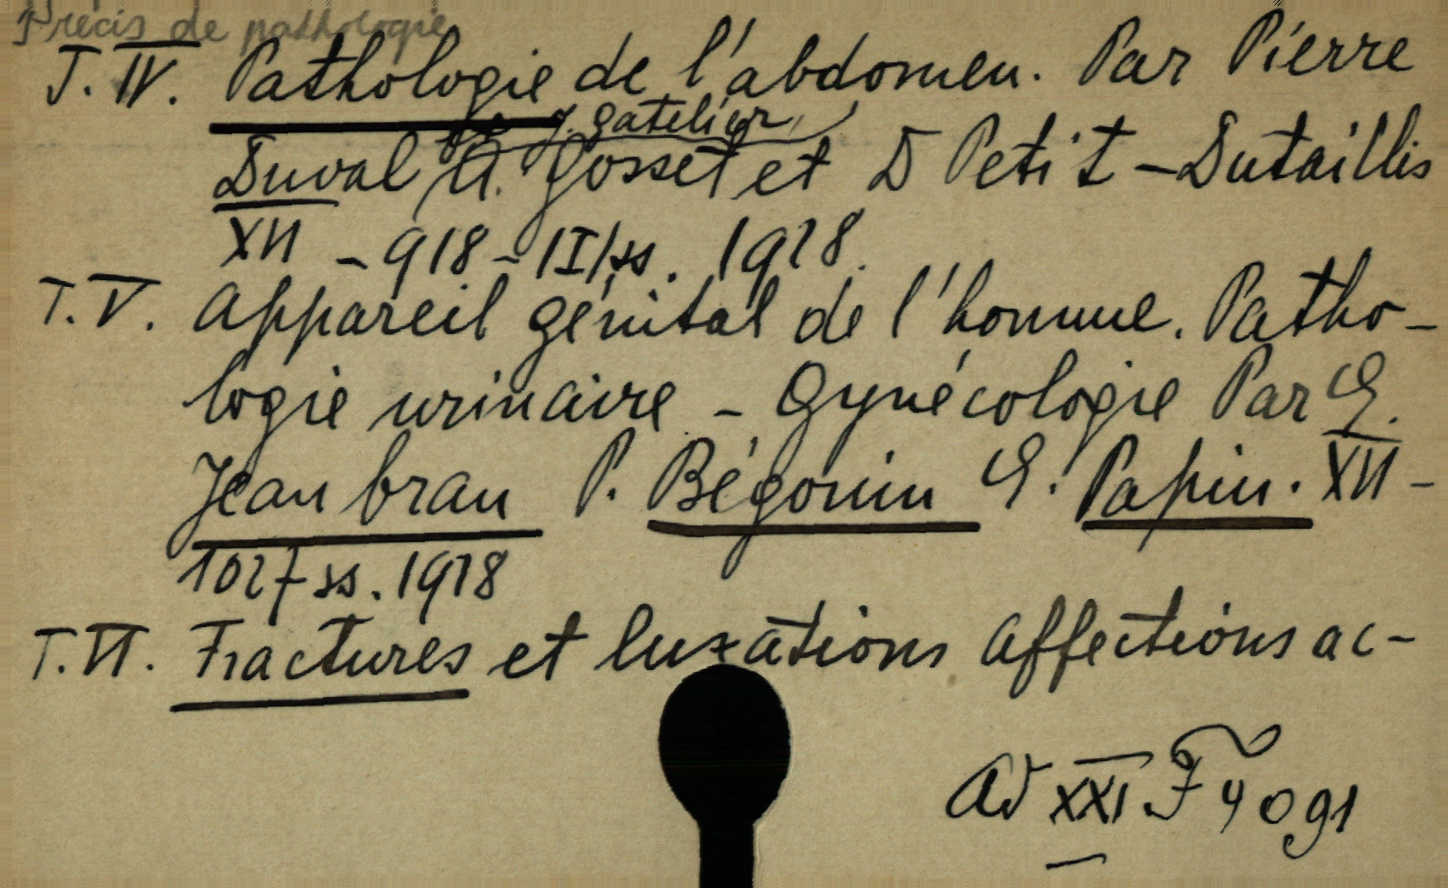 Précis de pathologie
T. IV. Pathologie de l'abdomen. Par Pierre
J. gatelier,
Duval A. Gosset et D Petit-Dutaillis
XII - 918 - II/ss. 1928.
T. V. Appareil génital de l'homme. Patho-
logie urinaire - Gynécologie Par E.
Jean brau P. Bégouin E. Papin. XII -
1027 ss. 1928
T. VI. Fractures et luxations affections ac-
Ad XXI. F 4091